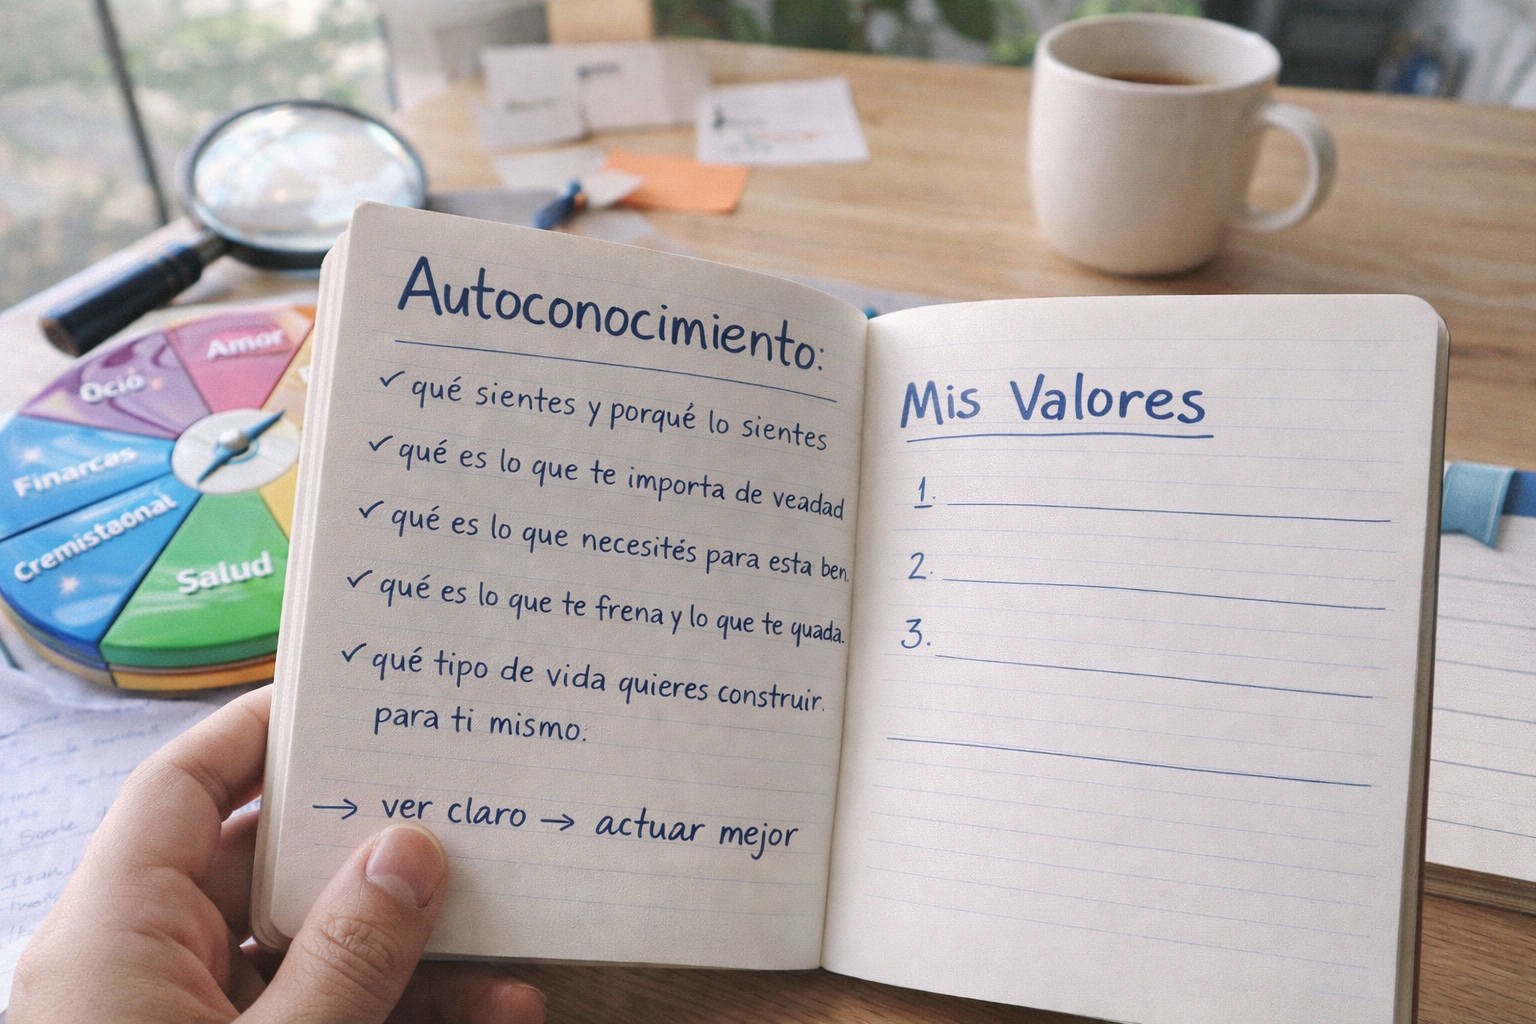 Autoconocimiento:
✓ qué sientes y porqué lo sientes
✓ qué es lo que te importa de veadad
✓ qué es lo que necesités para esta ben.
✓ qué es lo que te frena y lo que te quada.
✓ qué tipo de vida quieres construir.
para ti mismo.
→ ver claro → actuar mejor
Mis Valores
1.
2.
3.
Amor
Ocio
Finarcas
Cremistaonal
Salud